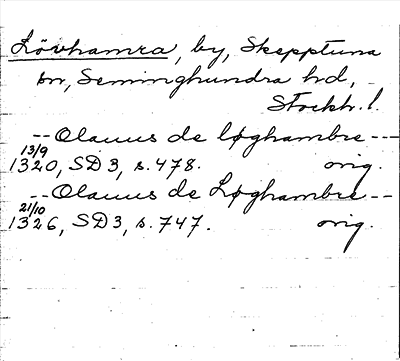 Lövhamra, by, Skepptuna
sn, Seminghundra hd,
Stockh. l.
-- Olauus de løghambre ---
13/9
1320, SD 3, s. 478. orig.
-- Olauus de Løghambre --
21/10
1326, SD 3, s. 747. orig.